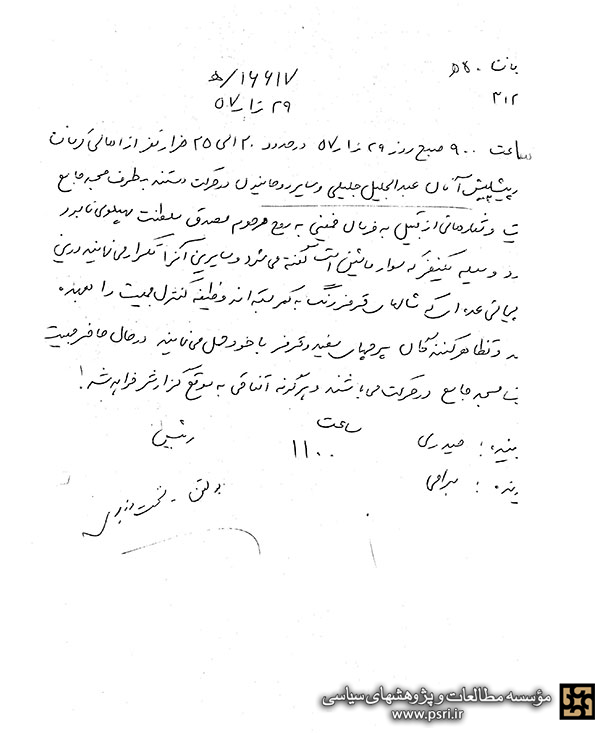 ۵۰۰ ه
۳۱۲
۱۶۶۱۷/ه
۲۹ ر۱۰ر۵۷
ساعت ۹۰۰ صبح روز ۲۹ ر۱۰ر۵۷ در حدود ۲۰ الی ۲۵ هزار نفر از اهالی
پیشاپیش آنان عبدالجلیل جلیلی و سایر روحانیون در حرکت هستند به طرف مسجد جامع
و شعارهائی از قبیل به فرمان خمینی به روح مرحوم مصدق سلطنت پهلوی
وسیله یکنفر که سوار ماشین است گفته می شود و سایرین آنرا تکرار می نمایند در این
عده ای که شالهای قرمز رنگ به کمر بسته اند وظیفه کنترل جمعیت را بعهده
و تظاهر کنندگان پرچمهای سفید و قرمز با خود حمل می نمایند در حال حاضر جمعیت
مسجد جامع در حرکت می باشند و هرگونه اتفاقی به موقع گزارش خواهد شد!
ساعت
۱۱۰۰
حیدری
بهرامی
مؤسسه مطالعات و پژوهشهای سیاسی
www.psri.ir